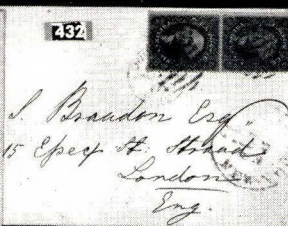 432
S. Braudon Esq.
15 Essex St. Strand
London
Eng.